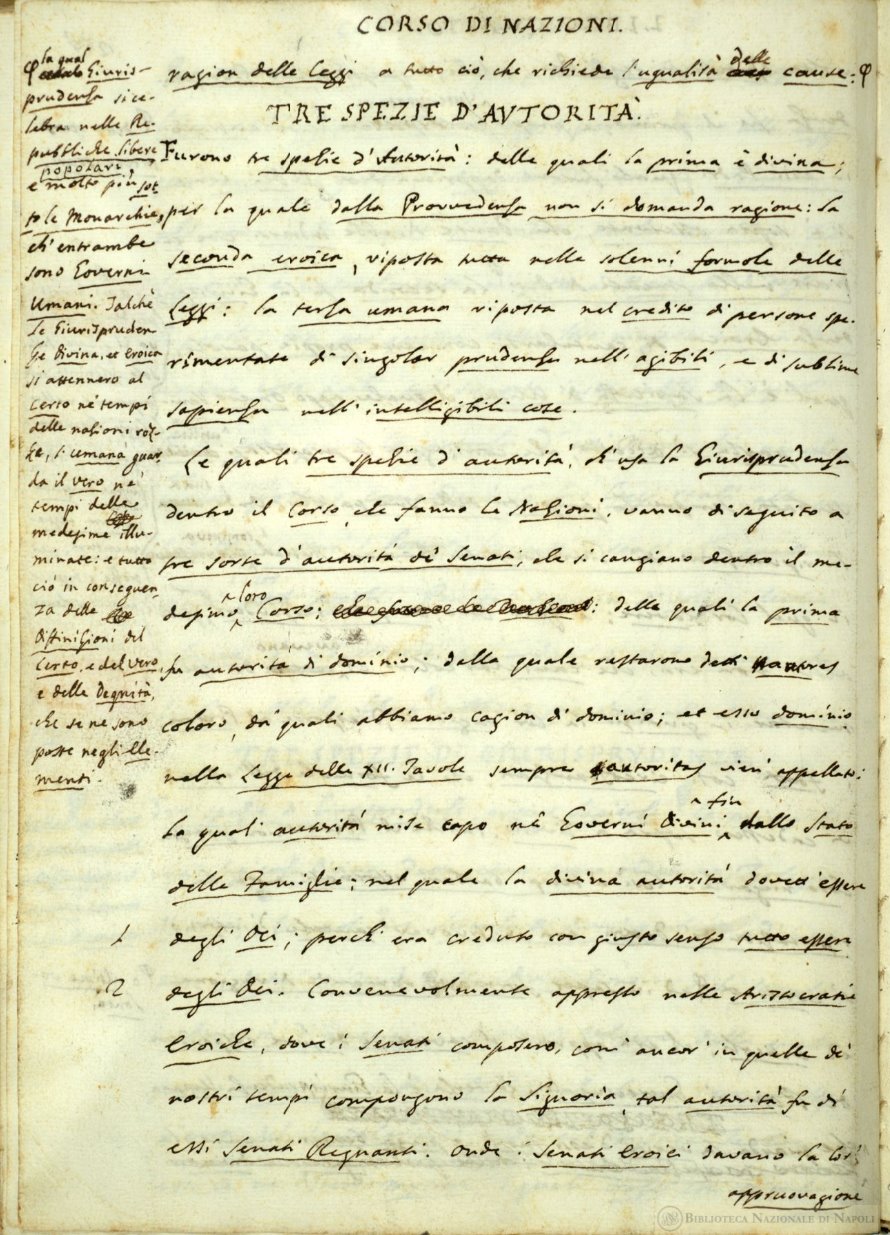 CORSO DI NAZIONI.
ragion delle Leggi a tutto ciò, che richiede l'ugualità delle cause: φ
TRE SPEZIE D'AVTORITÀ.
Furono tre spezie d'Autorità: delle quali la prima è divina;
per la quale dalla Provvedenza non si domanda ragione: la
seconda eroica, riposta tutta nelle solenni formole delle
Leggi: la terza umana riposta nel credito di persone spe-
rimentate di singolar prudenza nell'agibili, e di sublime
sapienza nell'intelligibili cose.
Le quali tre spezie d'autorità, ch'usa la Giurisprudenza
dentro il Corso, che fanno le Nazioni, vanno di séguito a
tre sorte d'autorità de' Senati, che si cangiano dentro il me-
desimo loro Corso: delle quali la prima
fu autorità di dominio; dalla quale restarono detti autores
coloro, da' quali abbiamo cagion di dominio; et esso dominio
nella Legge delle XII. Tavole sempre autoritas vien' appellato:
la qual' autorità mise capo ne' Governi Divini fin dallo Stato
delle Famiglie; nel quale la divina autorità dovett'essere
1 degli Dei; perch' era creduto con giusto senso tutto essere
2 degli Dei. Convenevolmente appresso nelle Aristocratie
Eroiche, dove i Senati composero, com' ancor' in quelle de'
nostri tempi compongono la Signoria, tal autorità fu di
essi Senati Regnanti. Onde i Senati Eroici davano la lor'
appruovagione
φ la qual Giuris-
prudenza si ce-
lebra nelle Re-
pubbliche libere
popolari,
e molto più sot-
to le Monarchie,
ch'entrambe
sono Governi
Umani. Talchè
le Giurispruden
ze Divina, et Eroica
si attennero al
Certo ne' tempi
delle nazioni roz-
ze, l'umana guar-
da il vero ne'
tempi delle
medesime illu-
minate: e tutto
ciò in conseguen
za delle
Diffinizioni del
Certo, e del vero,
e delle Degnità,
che se ne sono
poste negli Ele-
menti.
BIBLIOTECA NAZIONALE DI NAPOLI